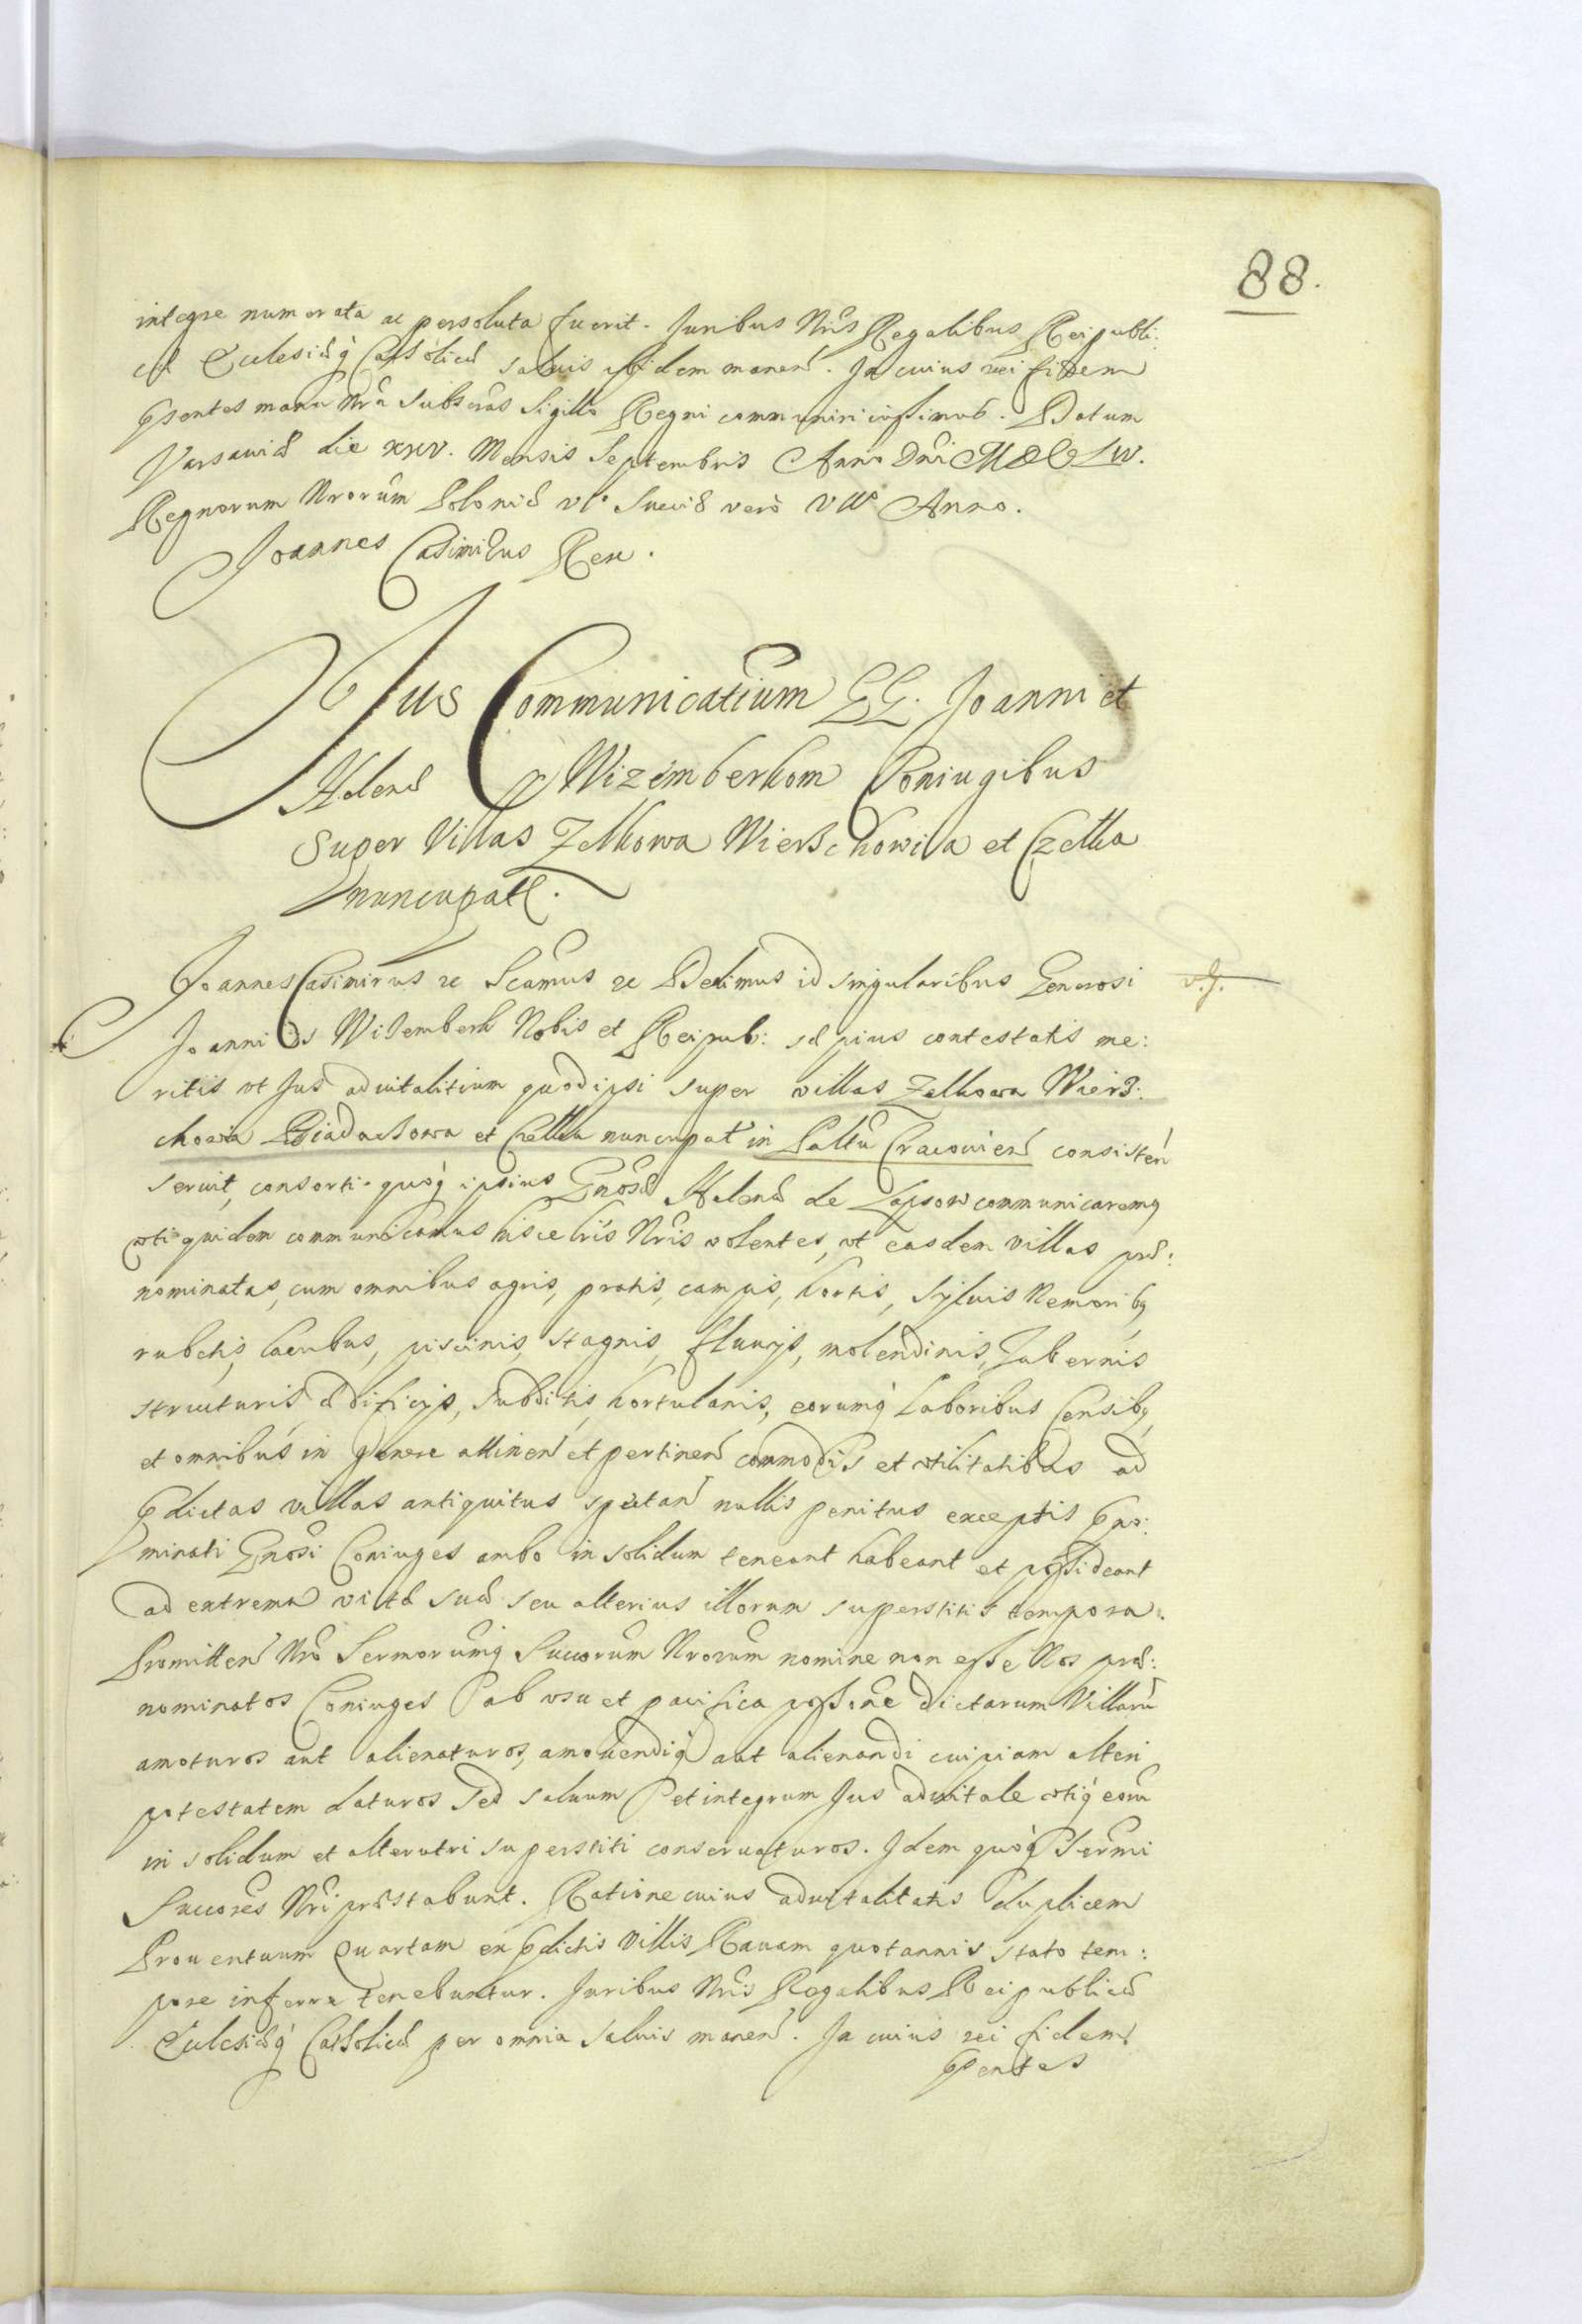 88.
integre numerata ac persoluta fuerit. Juribus Nris Regalibus Reipubli:
cæ Ecclesiæq̃ Catholicæ saluis ibidem manen̄. In cuius rei fidem
Pñsentes manu Nra subscras Sigillo Regni communiri iussimus. Datum
Varsauiæ die xxv. Mensis Septembris Anno Dni MDCLIV.
Regnorum Nrorum Poloniæ VI° Sueciæ verò VII° Anno.
Joannes Casimirus Rex.
Jus Communicatiuum GG. Joanni et
Helenæ Wizemberkom Coniugibus
Super Villas Zelkowa Wierzchowila et Czella
nuncupatt.
Joannes Casimirus &c Scamus &c Dedimus id singularibus Generosi
Joannis Wizemberk Nobis et Reipub: sæpius contestatis me:
ritis vt Jus aduitalitium quod ipsi super villas Zelkowa Wierz:
chowia Biadaczowa et Czella nuncupat in Palttu Cracouien̄ consisten̄
seruit, consorti quoq̃ ipsius Gnosæ Helenæ de Lapsow communicaremq
vti quidem communicamus hisce lris Nris volentes, vt easdem villas præ:
nominatas, cum omnibus agris, pratis, campis, hortis, syluis Nemoribq
rubetis, lacubus, piscinis, stagnis, fluuijs, molendinis, Tabernis
structuris, ædificijs, subditis, hortulanis, eorumq̃ laboribus Censibq,
et omnibus in genere attinen̄ et pertinen̄ commodis et vtilitatibus ad
pdictas villas antiquitus spectan̄ nullis penitus exceptis pno:
minati Gnosi Coniuges ambo in solidum teneant habeant et possideant
ad extrema vitæ suæ seu alterius illorum superstitis tempora.
Promitten̄ Nro Sermorumq̃ Succorum Nrorum nomine non esse Nos præ:
nominatos Coniuges ab vsu et pacifica possne dictarum Villarū
amoturos aut alienaturos, amouendiq̃ aut alienandi cuipiam alteri
potestatem daturos sed saluum et integrum Jus aduitale vtiq̃ eorū
in solidum et alterutri superstiti conseruaturos. Idem quoq̃ Sermi
Succores Nri præstabunt. Ratione cuius aduitalitatis duplicem
Prouentuum Quartam ex pdictis Villis Rauam quotannis stato tem:
pore inferre tenebuntur. Juribus Nris Regalibus Reipublicæ
Ecclesiæq̃ Catholicæ per omnia saluis manen̄. In cuius rei fidem
Pñsentes